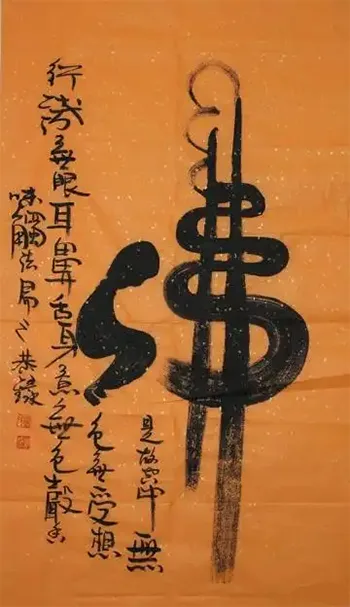 佛
是故空中無
色無受想
行識無眼耳鼻舌身意無色聲香
味觸法恭錄